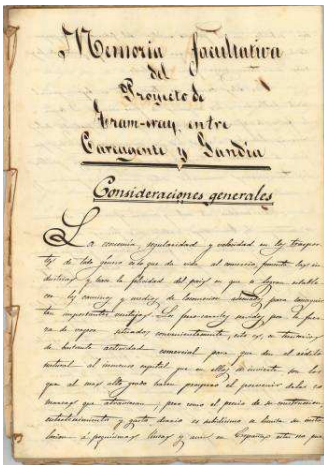 Memoria facultativa
del
Proyecto de
Tram-way entre
Carcagente y Gandia
Consideraciones generales
La economía, regularidad y velocidad en los traspor-
tes de todo género es lo que da vida al comercio, fomenta las in-
dustrias y hace la felicidad del pais en que se logran establer
con los caminos y medios de locomocion para conseguir
tan importantes ventajas. Los ferro-carriles movidos por la fuer-
za de vapor situados convenientemente, esto es, en territorios
de bastante actividad comercial para que den el rédito
natural al inmenso capital que en ellos se invierte son los
que al mas alto grado hacen prosperar el porvenir de las co-
marcas que atraviesan; pero como el precio de su construccion
establecimiento y gasto diario es subidisimo se limita
á poquisimas lineas y aun en España estas no pue